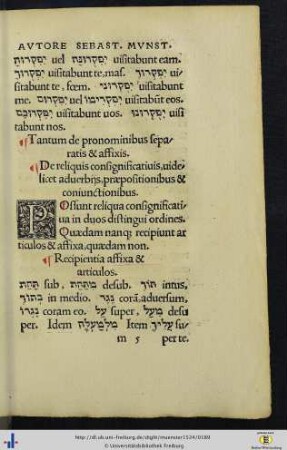 AVTORE SEBAST. MVNST.
יִפְקְרוּהָ uel יִפְקְרוּנָה uisitabunt eam.
יִפְקְרוּךָ uisitabunt te, mas. יִפְקְרוּךְ ui/
sitabunt te, fœm. יִפְקְרוּנִי uisitabunt
me. יִפְקְרוּם uel יִפְקְרוּמוֹ uisitabūt eos.
יִפְקְרוּכֶם uisitabunt uos. יִפְקְרוּנוּ uisi
tabunt nos.
¶Tantum de pronominibus sepa/
ratis & affixis.
¶De reliquis consignificatiuis, uide/
licet aduerbijs, præpositionibus &
coniunctionibus.
POssunt reliqua consignificati/
ua in duos distingui ordines.
Quædam nanque recipiunt ar
ticulos & affixa, quædam non.
¶Recipientia affixa &
articulos.
תַּחַת sub, מִתַּחַת desub. תּוֹךְ intus,
בְּתוֹךְ in medio. נֶגֶד corā, aduersum,
נֶגְדּוֹ coram eo. עַל super, מֵעַל desu
per. Idem מִלְמַעְלָה Item עָלֶיךָ su/
m 5 per te.
http://dl.ub.uni-freiburg.de/diglit/muenster1524/0189
© Universitätsbibliothek Freiburg